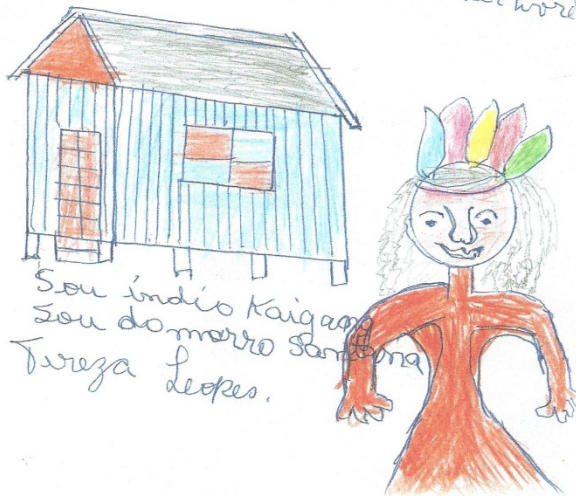 Sou índio Kaigang
Sou do morro Santana
Tireza Leopes.